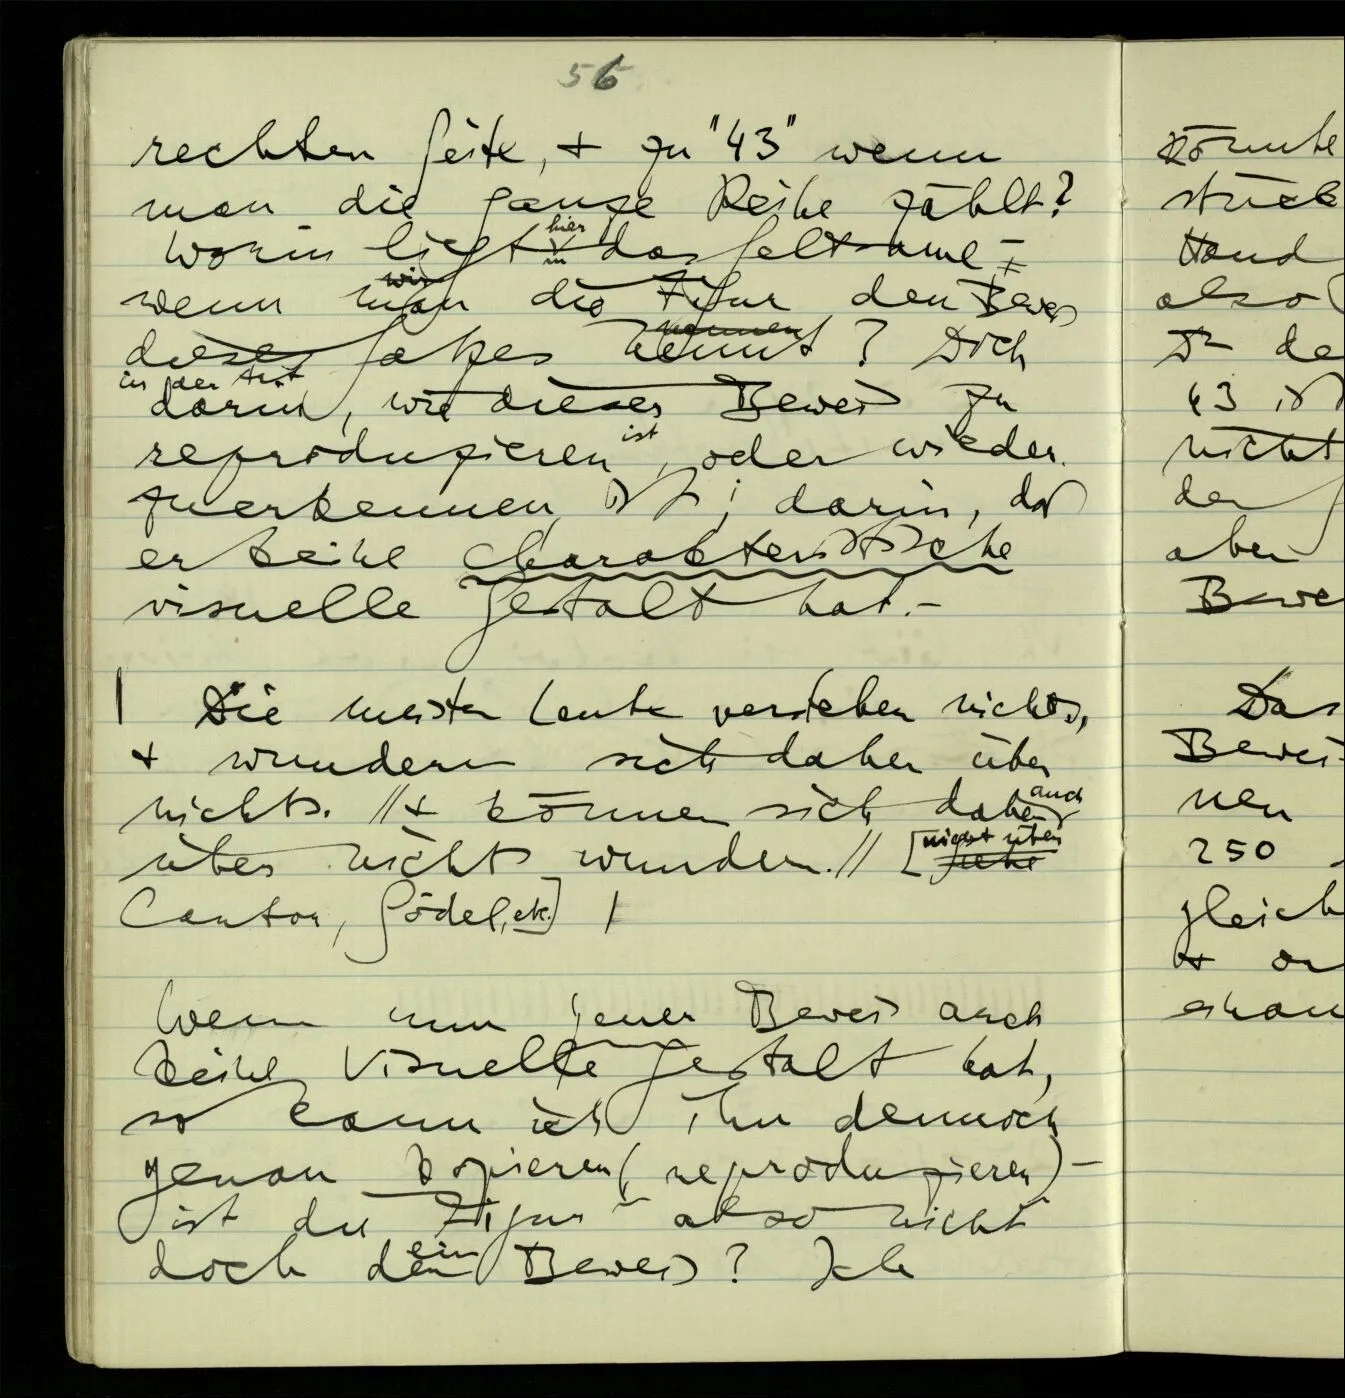 56
rechten Seite, + zu "43" wenn
man die ganze Reihe zählt?
Worin liegt hier das Seltsame –
wenn wir man die Figur den Beweis
dieses Satzes nennen kennt? Doch
in der Art
darin, wie dieser Beweis zu
reproduzieren ist, oder wieder
zuerkennen ist; darin, daß
er keine charakteristische
visuelle Gestalt hat. –
| Die meisten Leute verstehen nichts,
+ wundern sich daher über
nichts. // + können sich daher auch
über nichts wundern. // [nicht über
Cantor, Gödel, etc.] |
Wenn nun jener Beweis auch
keine visuelle Gestalt hat,
so kann ich ihn dennoch
genau kopieren (reproduzieren) –
ist die Figur also nicht
doch ein Beweis? Ich
könnte
Hand
also
43 ist
nicht
der
aber
Das
nen
250
gleich